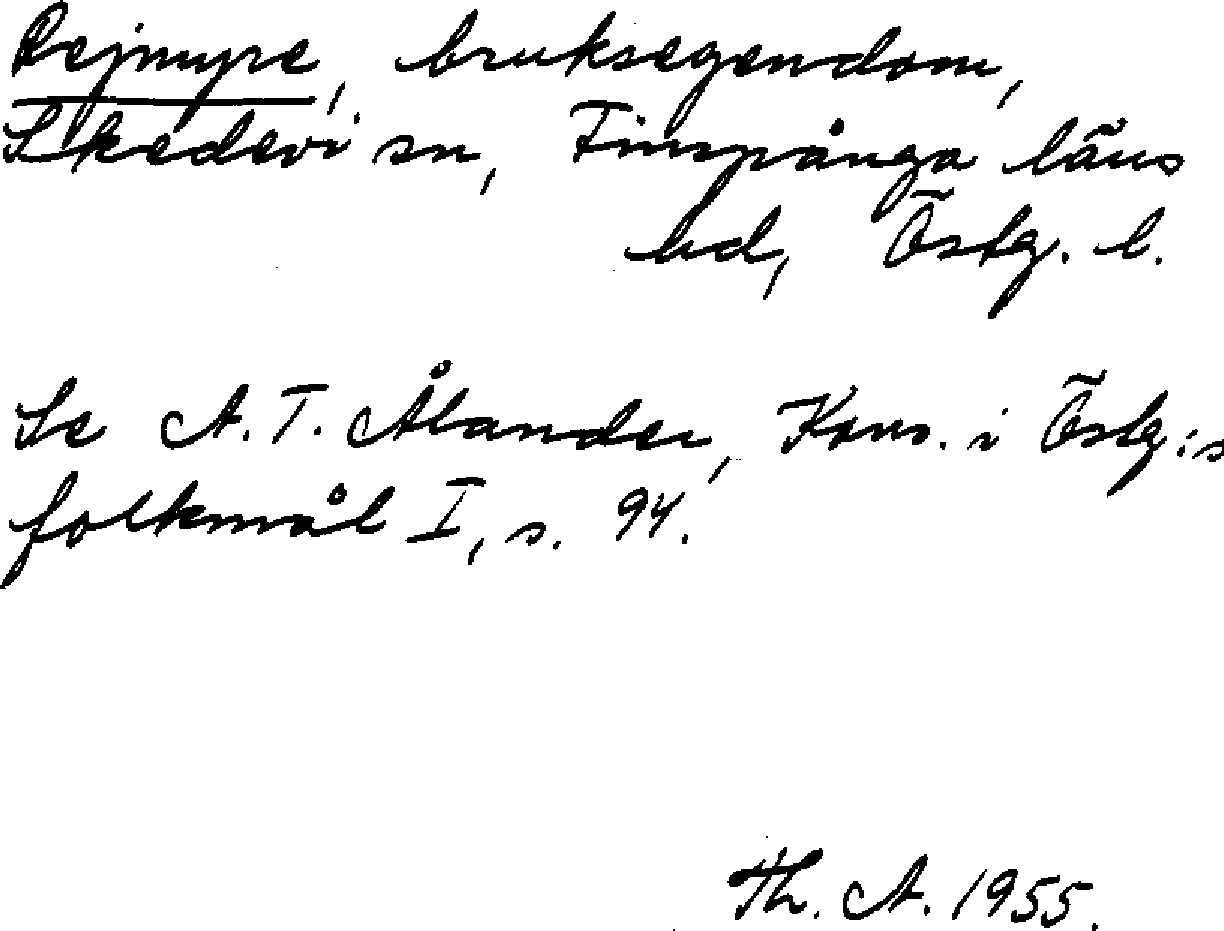 Rejmyre, bruksegendom,
Skedevi sn, Finspånga läns
hd, Östg. l.
Se A. T. Ålander, Kons. i Östg:s
folkmål I, s. 94.
Th. A. 1955.